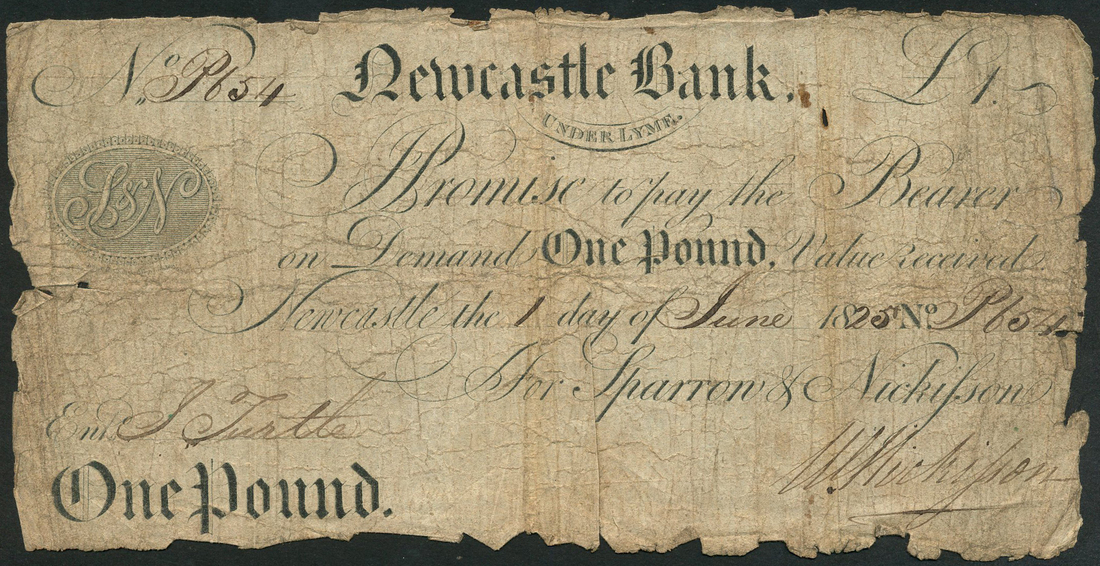 No. P654 Newcastle Bank. £1.
UNDER LYME.
S&N
I Promise to pay the Bearer
on Demand One Pound, Value received
Newcastle the 1 day of June 1825 No. P654
For Sparrow & Nickisson
Entd. J. Turtle
One Pound.
W Nickisson